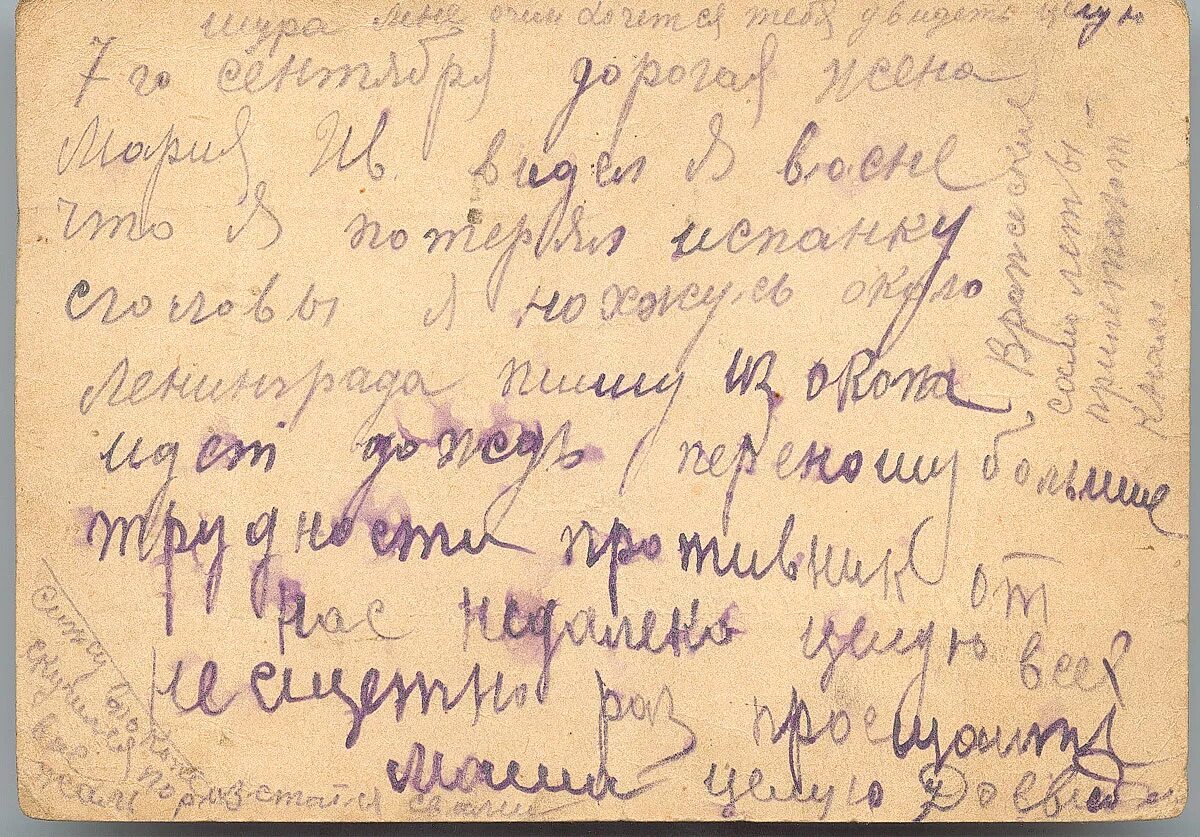 шура мне очин хочется тебя увидеть целую
7 го сентября дорогая жена
Мария Ив. видел я восне
что я потерял испанку
сголовы я нохжусь около
Ленинграда пишу из окопа
идет дождь переношу большие
трудности противник от
нас недалеко целую всех
несщетно раз прощайте
Маша целую Досвид
Вражеские
самолеты
прилетают
к нам
сижу в окопе
скучился по
вас
жаль розстатся свами